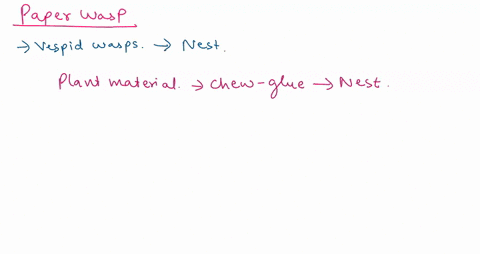 Paper wasp
→ Vespid wasps. → Nest.
Plant material. → chew-glue → Nest.